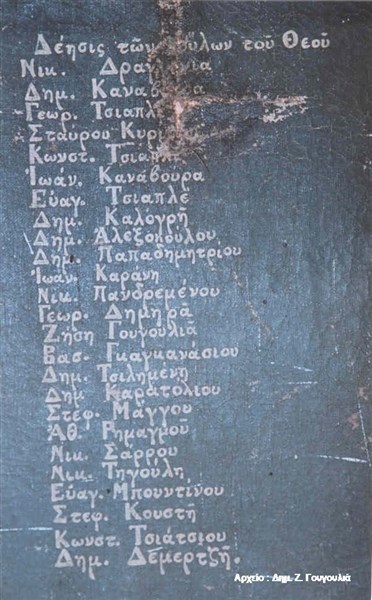 Δέησις τῶν δούλων τοῦ Θεοῦ
Νικ.
Δημ. Καναβούρα
Γεωρ. Τσιαπλέ
Σταύρου
Κωνστ. Τσιαπλέ
Ἰωάν. Κανάβουρα
Εὐαγ. Τσιαπλέ
Δημ. Καλογρῆ
Δημ. Ἀλεξοπούλου
Δημ. Παπαδημητρίου
Ἰωάν. Καρανη
Νικ. Πανδρεμένου
Γεωρ. Δημηρα
Ζήση Γουγουλιᾶ
Βασ. Γκαγκανάσιου
Δημ. Τσιλημένη
Δημ. Καρατολίου
Στεφ. Μάγγου
Ἀθ. Ρημαγμοῦ
Νικ. Σάρρου
Νικ. Τηγούλη
Εὐαγ. Μπουντίνου
Στεφ. Κουστῆ
Κωνστ. Τσιάτσιου
Δημ. Δεμερτζῆ.
Αρχείο : Δημ. Ζ. Γουγουλιά